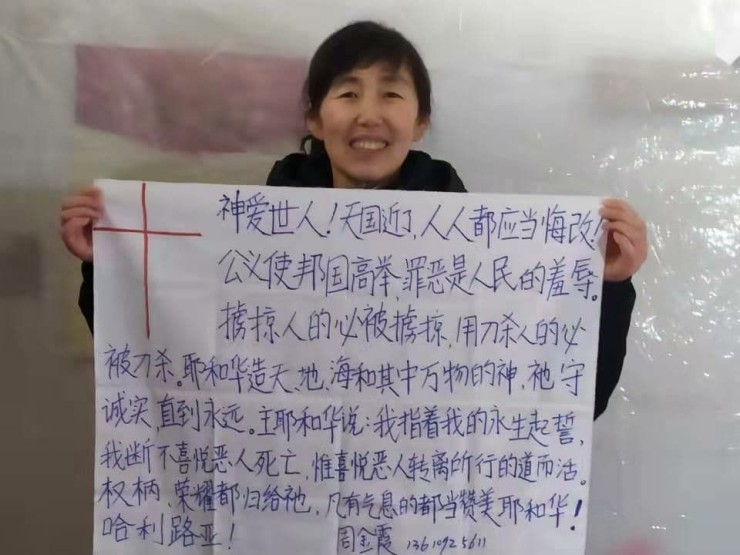 神爱世人！天国近了，人人都应当悔改！
公义使邦国高举，罪恶是人民的羞辱。
掳掠人的必被掳掠，用刀杀人的必
被刀杀。耶和华造天、地、海和其中万物的神，祂守
诚实直到永远。主耶和华说：我指着我的永生起誓，
我断不喜悦恶人死亡，惟喜悦恶人转离所行的道而活。
权柄、荣耀都归给祂，凡有气息的都当赞美耶和华！
哈利路亚！ 周金霞 13610925611